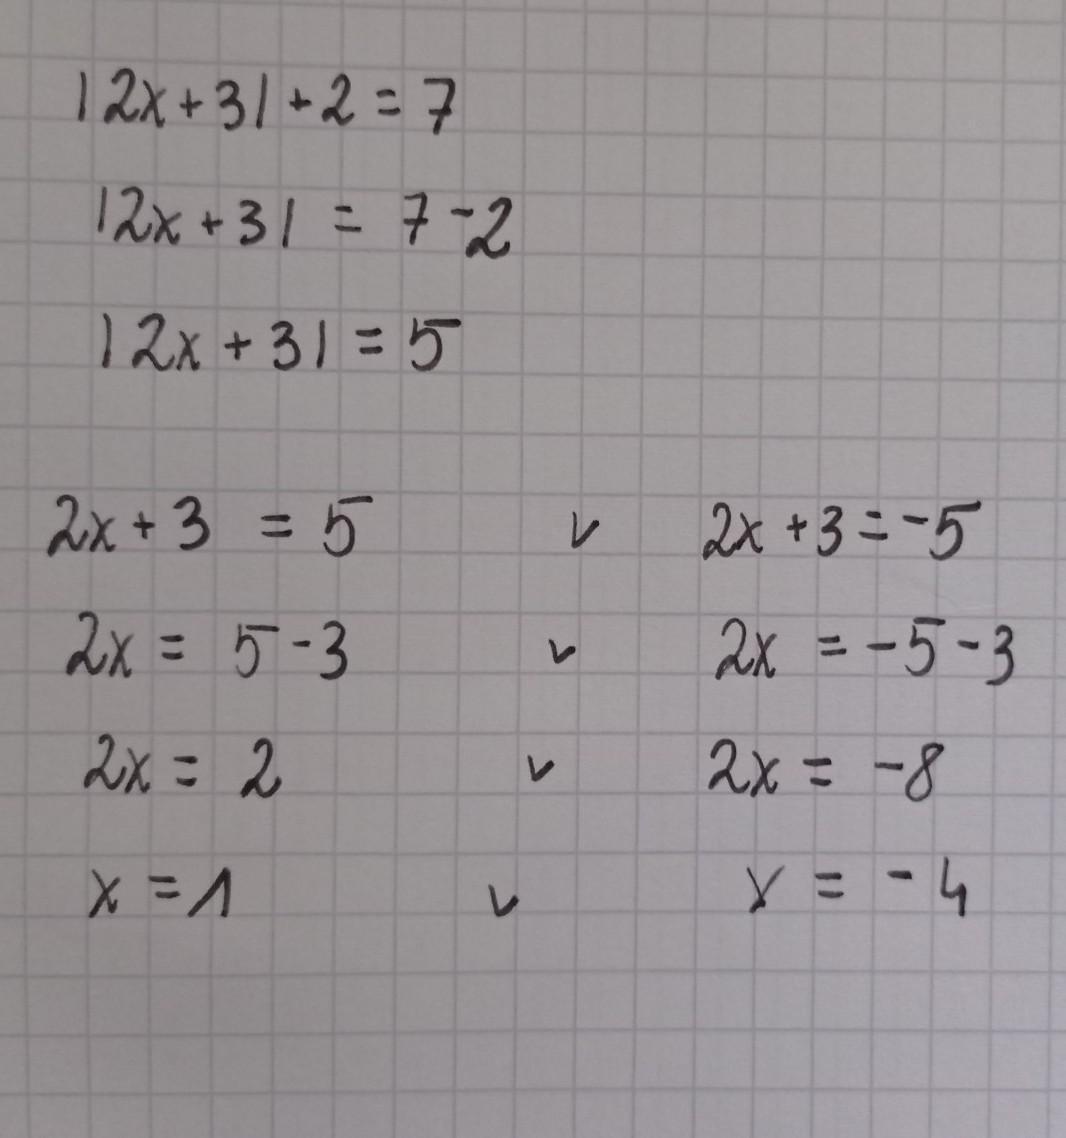 |2x+3|+2=7
|2x+3| = 7-2
|2x+3|=5
2x+3 = 5 v 2x+3=-5
2x = 5-3 v 2x = -5-3
2x = 2 v 2x = -8
x = 1 v x = -4